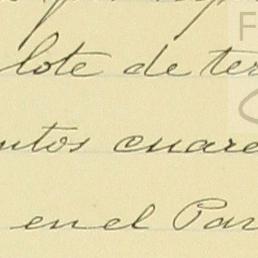 lote de ter
ntos cuare
en el Par